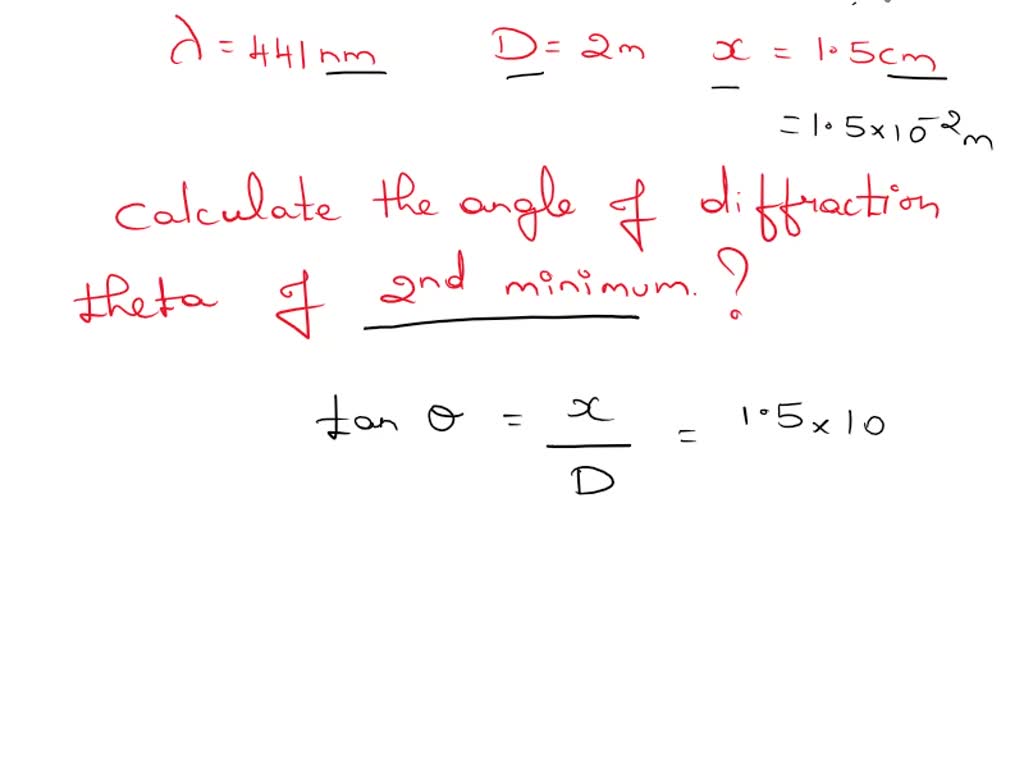 λ = 441 nm D = 2m x = 1.5cm
= 1.5×10⁻²m
calculate the angle of diffraction
theta of 2nd minimum. ?
tan θ = x/D = 1.5×10